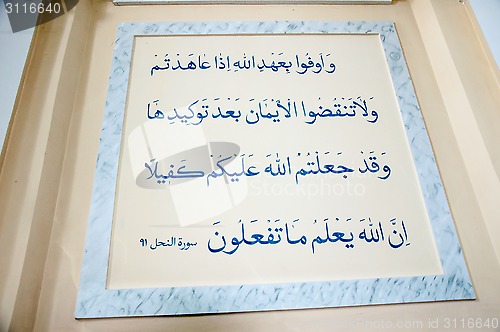 وَأَوْفُوا بِعَهْدِ اللهِ إِذَا عَاهَدْتُمْ
وَلَا تَنْقُضُوا الْأَيْمَانَ بَعْدَ تَوْكِيدِهَا
وَقَدْ جَعَلْتُمُ اللهَ عَلَيْكُمْ كَفِيلًا
إِنَّ اللهَ يَعْلَمُ مَا تَفْعَلُونَ سورة النحل ٩١
©stockphoto
3116640
3116640